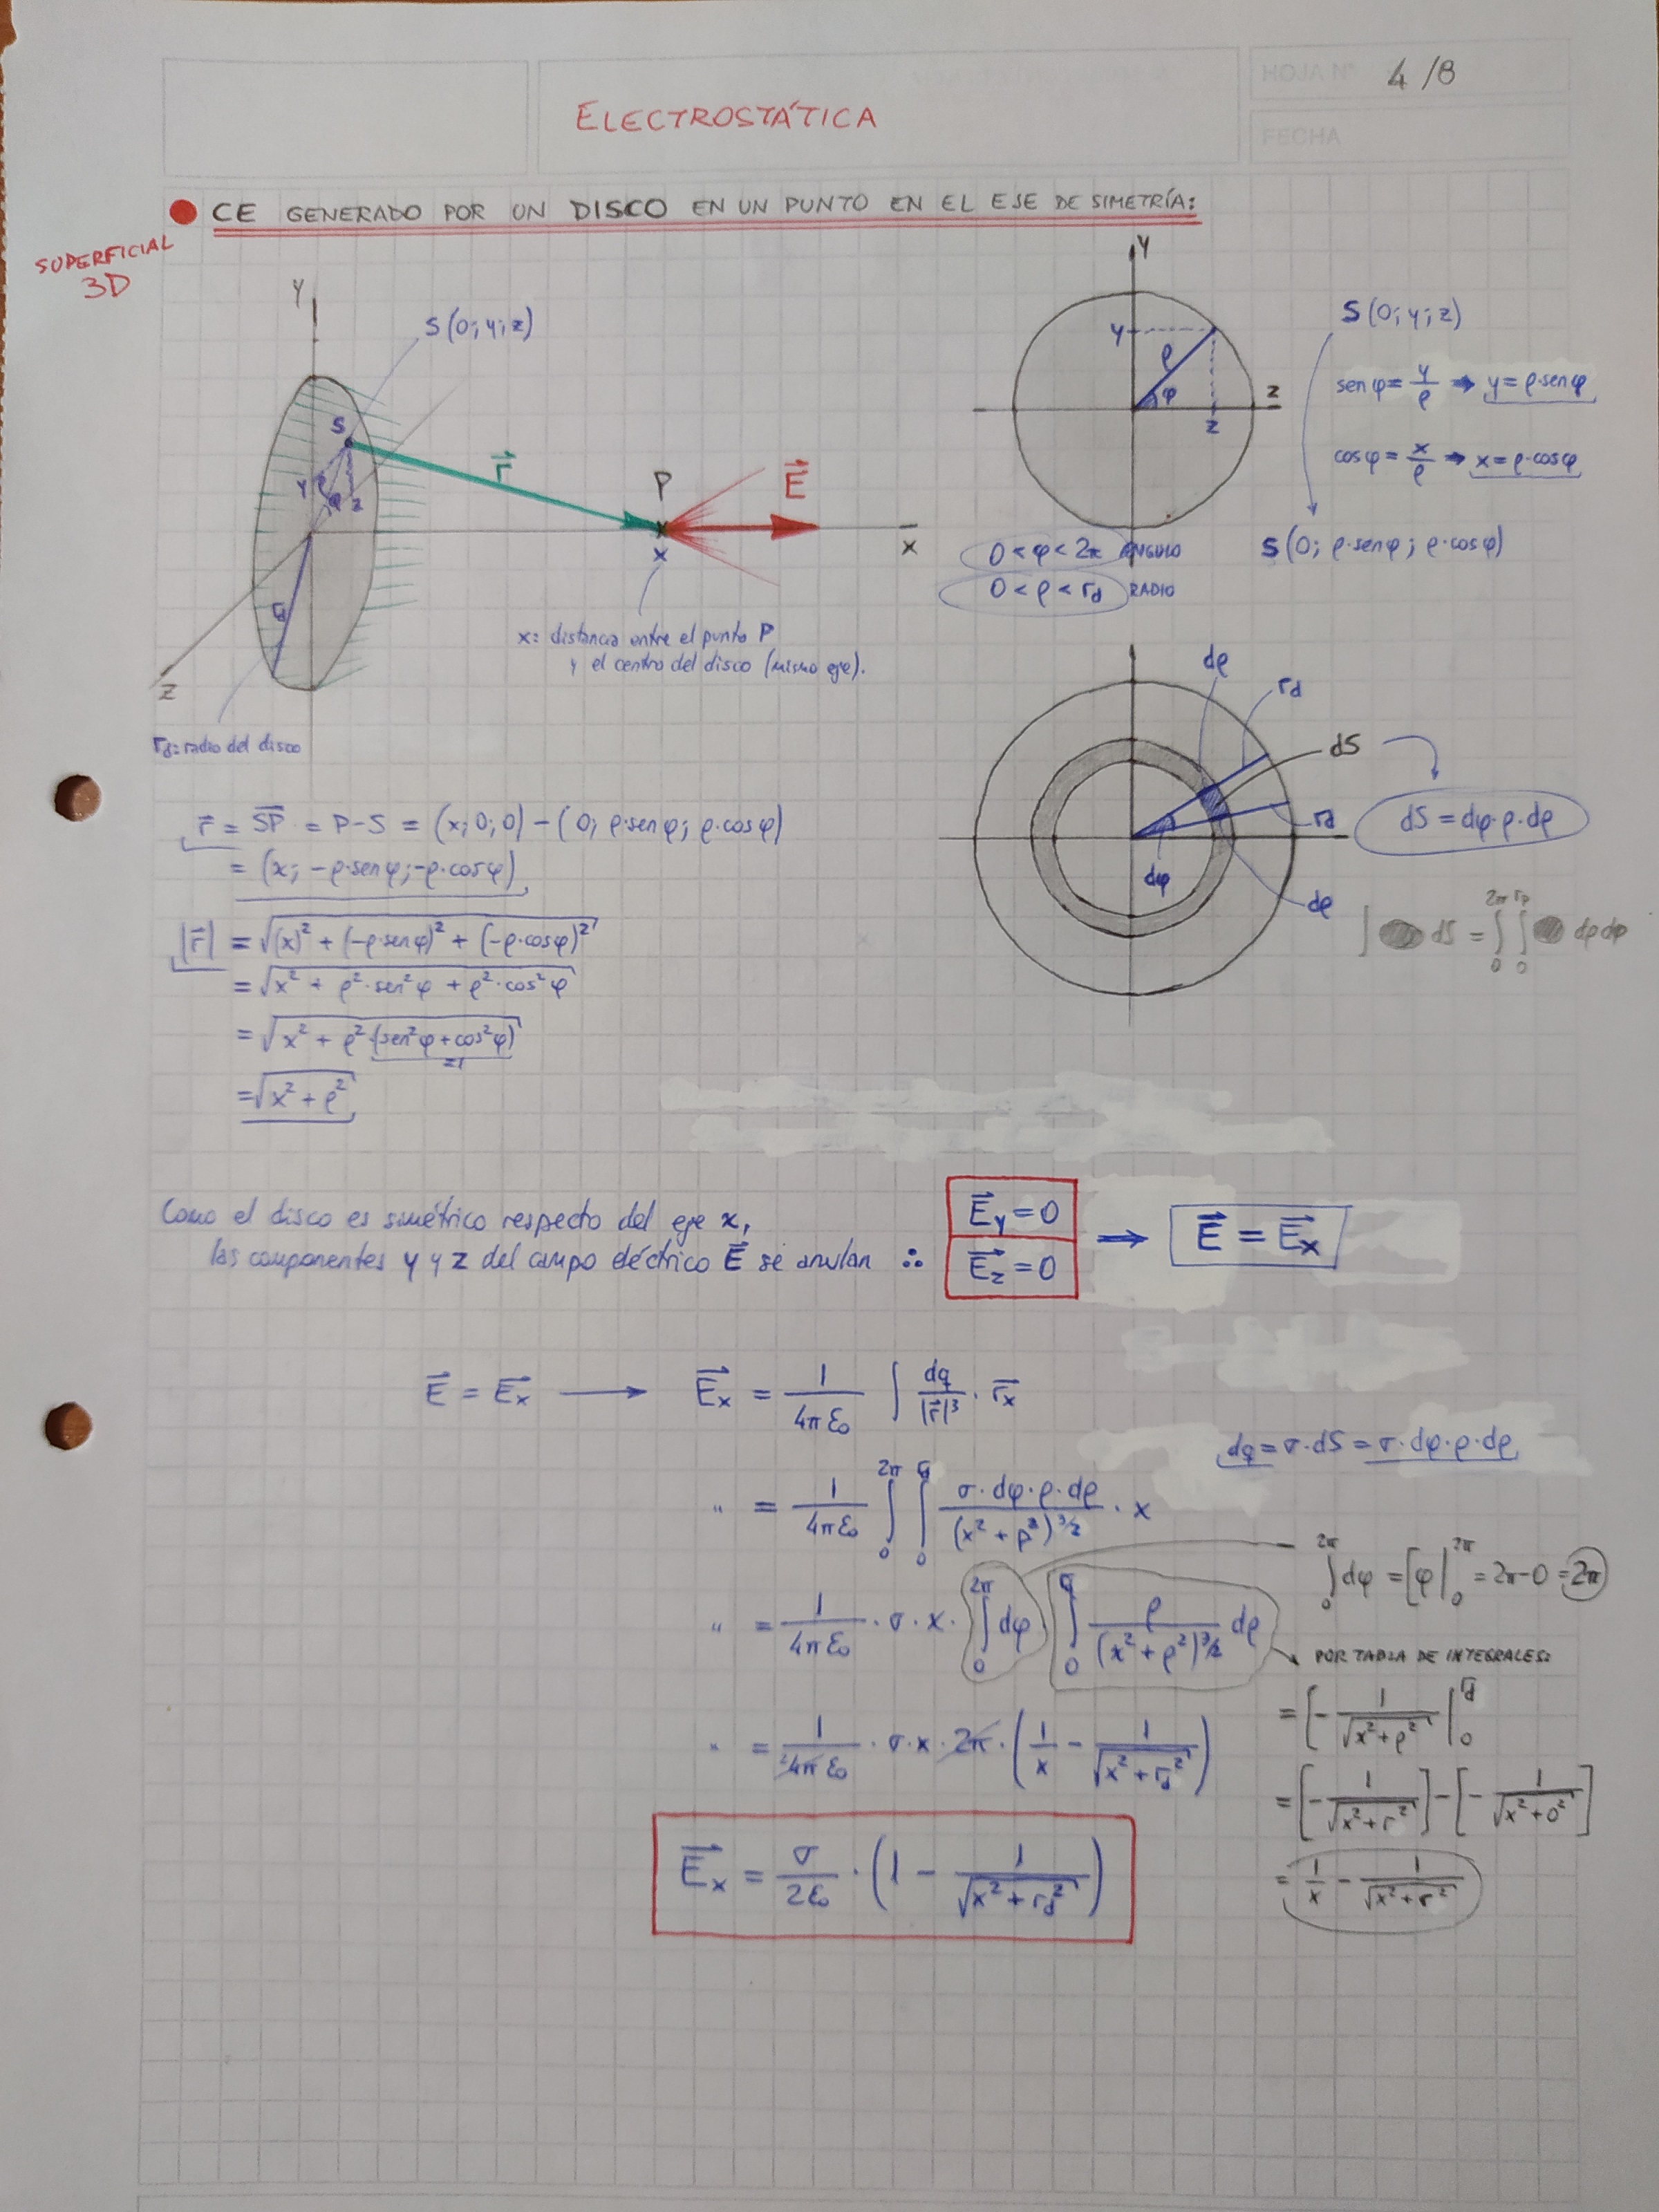 HOJA Nº 4/8
ELECTROSTÁTICA
FECHA
CE GENERADO POR UN DISCO EN UN PUNTO EN EL EJE DE SIMETRÍA:
SUPERFICIAL
3D
Y
S(0; y; z)
S
Y
ρ
φ
z
r⃗
P
E⃗
x
X
rd
Z
x: distancia entre el punto P
y el centro del disco (mismo eje).
rd: radio del disco
Y
y
ρ
φ
z
Z
0 < φ < 2π ÁNGULO
0 < ρ < rd RADIO
S(0; y; z)
sen φ = y/ρ ➡ y = ρ·sen φ
cos φ = x/ρ ➡ x = ρ·cos φ
S(0; ρ·sen φ; ρ·cos φ)
dρ
rd
dS
rd
dφ
dρ
dS = dφ·ρ·dρ
∫ dS = ∫₀^2π ∫₀^rd dρdφ
r⃗ = SP⃗ = P-S = (x; 0; 0) - (0; ρ·sen φ; ρ·cos φ)
= (x; -ρ·sen φ; -ρ·cos φ)
|r⃗| = √((x)² + (-ρ·sen φ)² + (-ρ·cos φ)²)
= √(x² + ρ²·sen²φ + ρ²·cos²φ)
= √(x² + ρ²(sen²φ + cos²φ))
=1
= √(x² + ρ²)
Como el disco es simétrico respecto del eje x,
las componentes y y z del campo eléctrico E⃗ se anulan ∴
E⃗y = 0
E⃗z = 0
➡ E⃗ = E⃗x
E⃗ = E⃗x ⟶ E⃗x = 1/(4πε₀) ∫ dq/|r⃗|³ · r⃗x
dq = σ·dS = σ·dφ·ρ·dρ
" = 1/(4πε₀) ∫₀^2π ∫₀^rd σ·dφ·ρ·dρ/(x² + ρ²)^3/2 · x
∫₀^2π dφ = [φ|₀^2π = 2π-0 = 2π
" = 1/(4πε₀) · σ · x · ∫₀^2π dφ ∫₀^rd ρ/(x² + ρ²)^3/2 dρ
POR TABLA DE INTEGRALES:
= [- 1/√(x²+ρ²) |₀^rd
" = 1/(4πε₀) · σ·x·2π · (1/x - 1/√(x²+rd²))
= [- 1/√(x²+r²)] - [- 1/√(x²+0²)]
E⃗x = σ/(2ε₀) · (1 - 1/√(x²+rd²))
= 1/x - 1/√(x²+r²)